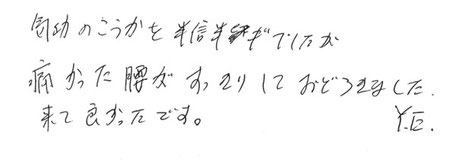 気功のこうかを半信半ギでしたが
痛かった腰がすっきりしておどろきました.
来て良かったです。 Y.E.